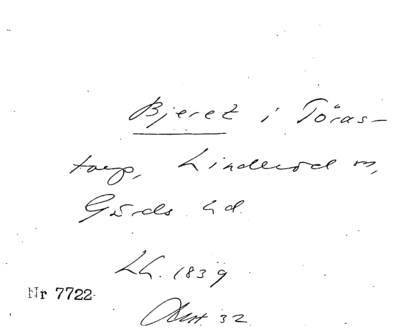 Bjeret i Töras-
torp, Linderöd sn,
Gärds hd.
Lh. 1839
Nr 7722
32